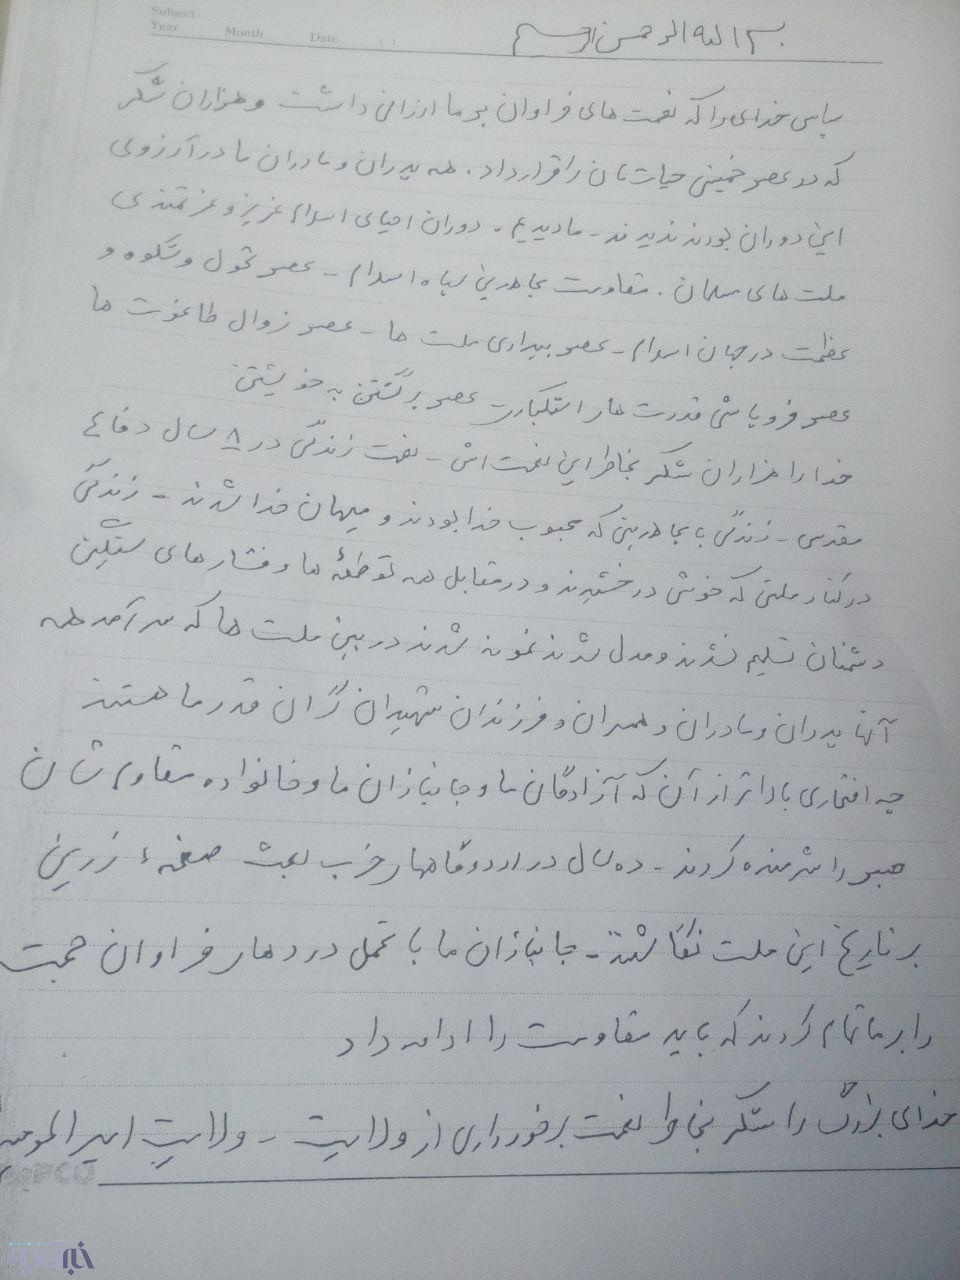 Subject:
Year Month Date ( )
بسم الله الرحمن الرحیم
سپاس خدای را که نعمت های فراوان بر ما ارزانی داشت و هزاران شکر
که در عصر خمینی حیات مان را قرار داد. همه پدران و مادران ما در آرزوی
این دوران بودند ندیدند - ما دیدیم. دوران احیای اسلام عزیز و عزتمندی
ملت های مسلمان. مقاومت مجاهدین سپاه اسلام - عصر تحول و شکوه و
عظمت در جهان اسلام - عصر بیداری ملت ها - عصر زوال طاغوت ها
عصر فروپاشی قدرت های استکباری - عصر برگشتن به خویشتن
خدا را هزاران شکر بخاطر این نعمت اش - نعمت زندگی در ۸ سال دفاع
مقدس - زندگی با مجاهدینی که محبوب خدا بودند و میهمان خدا شدند - زندگی
در کنار ملتی که خوش درخشیدند و در مقابل همه توطئهٔ ها و فشارهای سنگین
دشمنان تسلیم نشدند و مدل شدند نمونه شدند در بین ملت ها که سرآمد همه
آنها پدران و مادران و همسران و فرزندان شهیدان گران قدر ما هستند
چه افتخاری بالاتر از آن که آزادگان ما و جانبازان ما و خانواده مقاوم شان
صبر را شرمنده کردند - ده سال در اردوگاههای حزب بعث صفحهٔ زرین
بر تاریخ این ملت نگاشتند - جانبازان ما با تحمل دردهای فراوان حجت
را بر ما تمام کردند که باید مقاومت را ادامه داد
خدای بزرگ را شکر بخاطر نعمت برخورداری از ولایت - ولایت امیرالمومنین
PAPCO
خبر